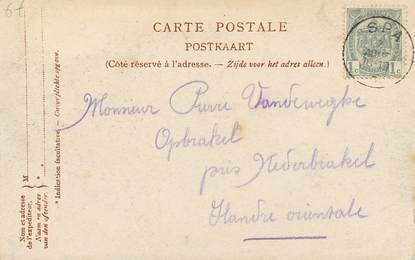 67
CARTE POSTALE
POSTKAART
(Côté réservé à l'adresse. — Zijde voor het adres alleen.)
SPA
Monsieur Pierre Vandeweghe
Opbrakel
près Nederbrakel
Flandre orientale
* Indication facultative. — Onverplichte opgave.
Nom et adresse de l'expéditeur.
Naam en adres van den afzender.
M